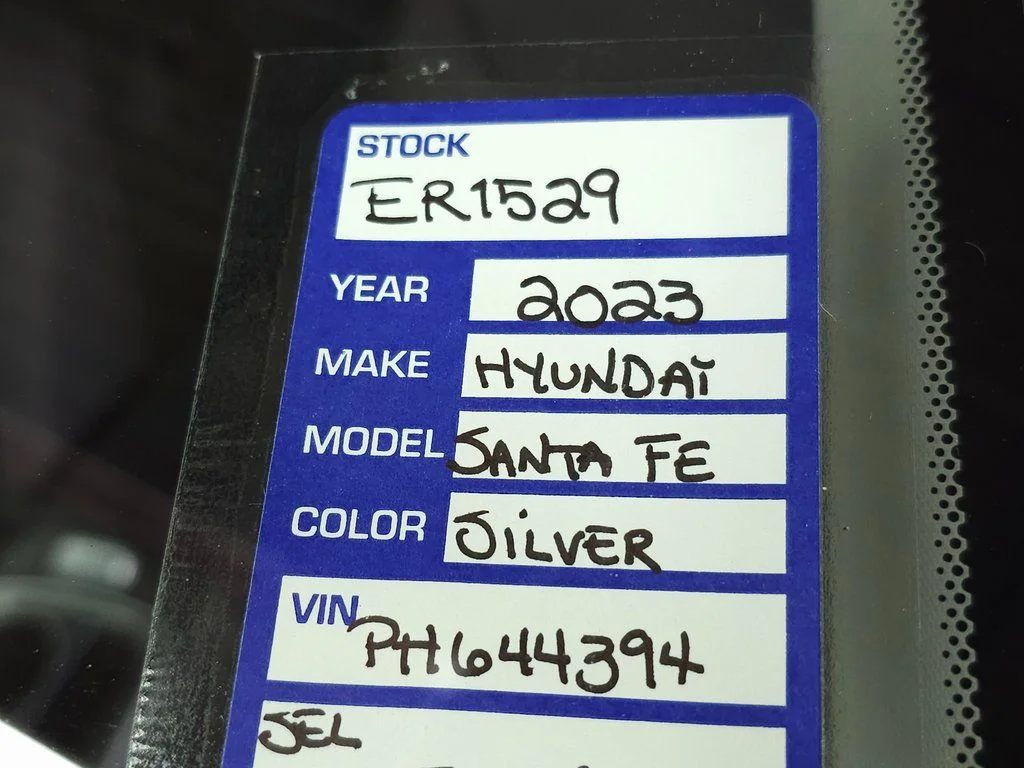 STOCK
ER1529
YEAR 2023
MAKE HYUNDAi
MODEL SANTA FE
COLOR SiLVER
VIN PH644394
SEL